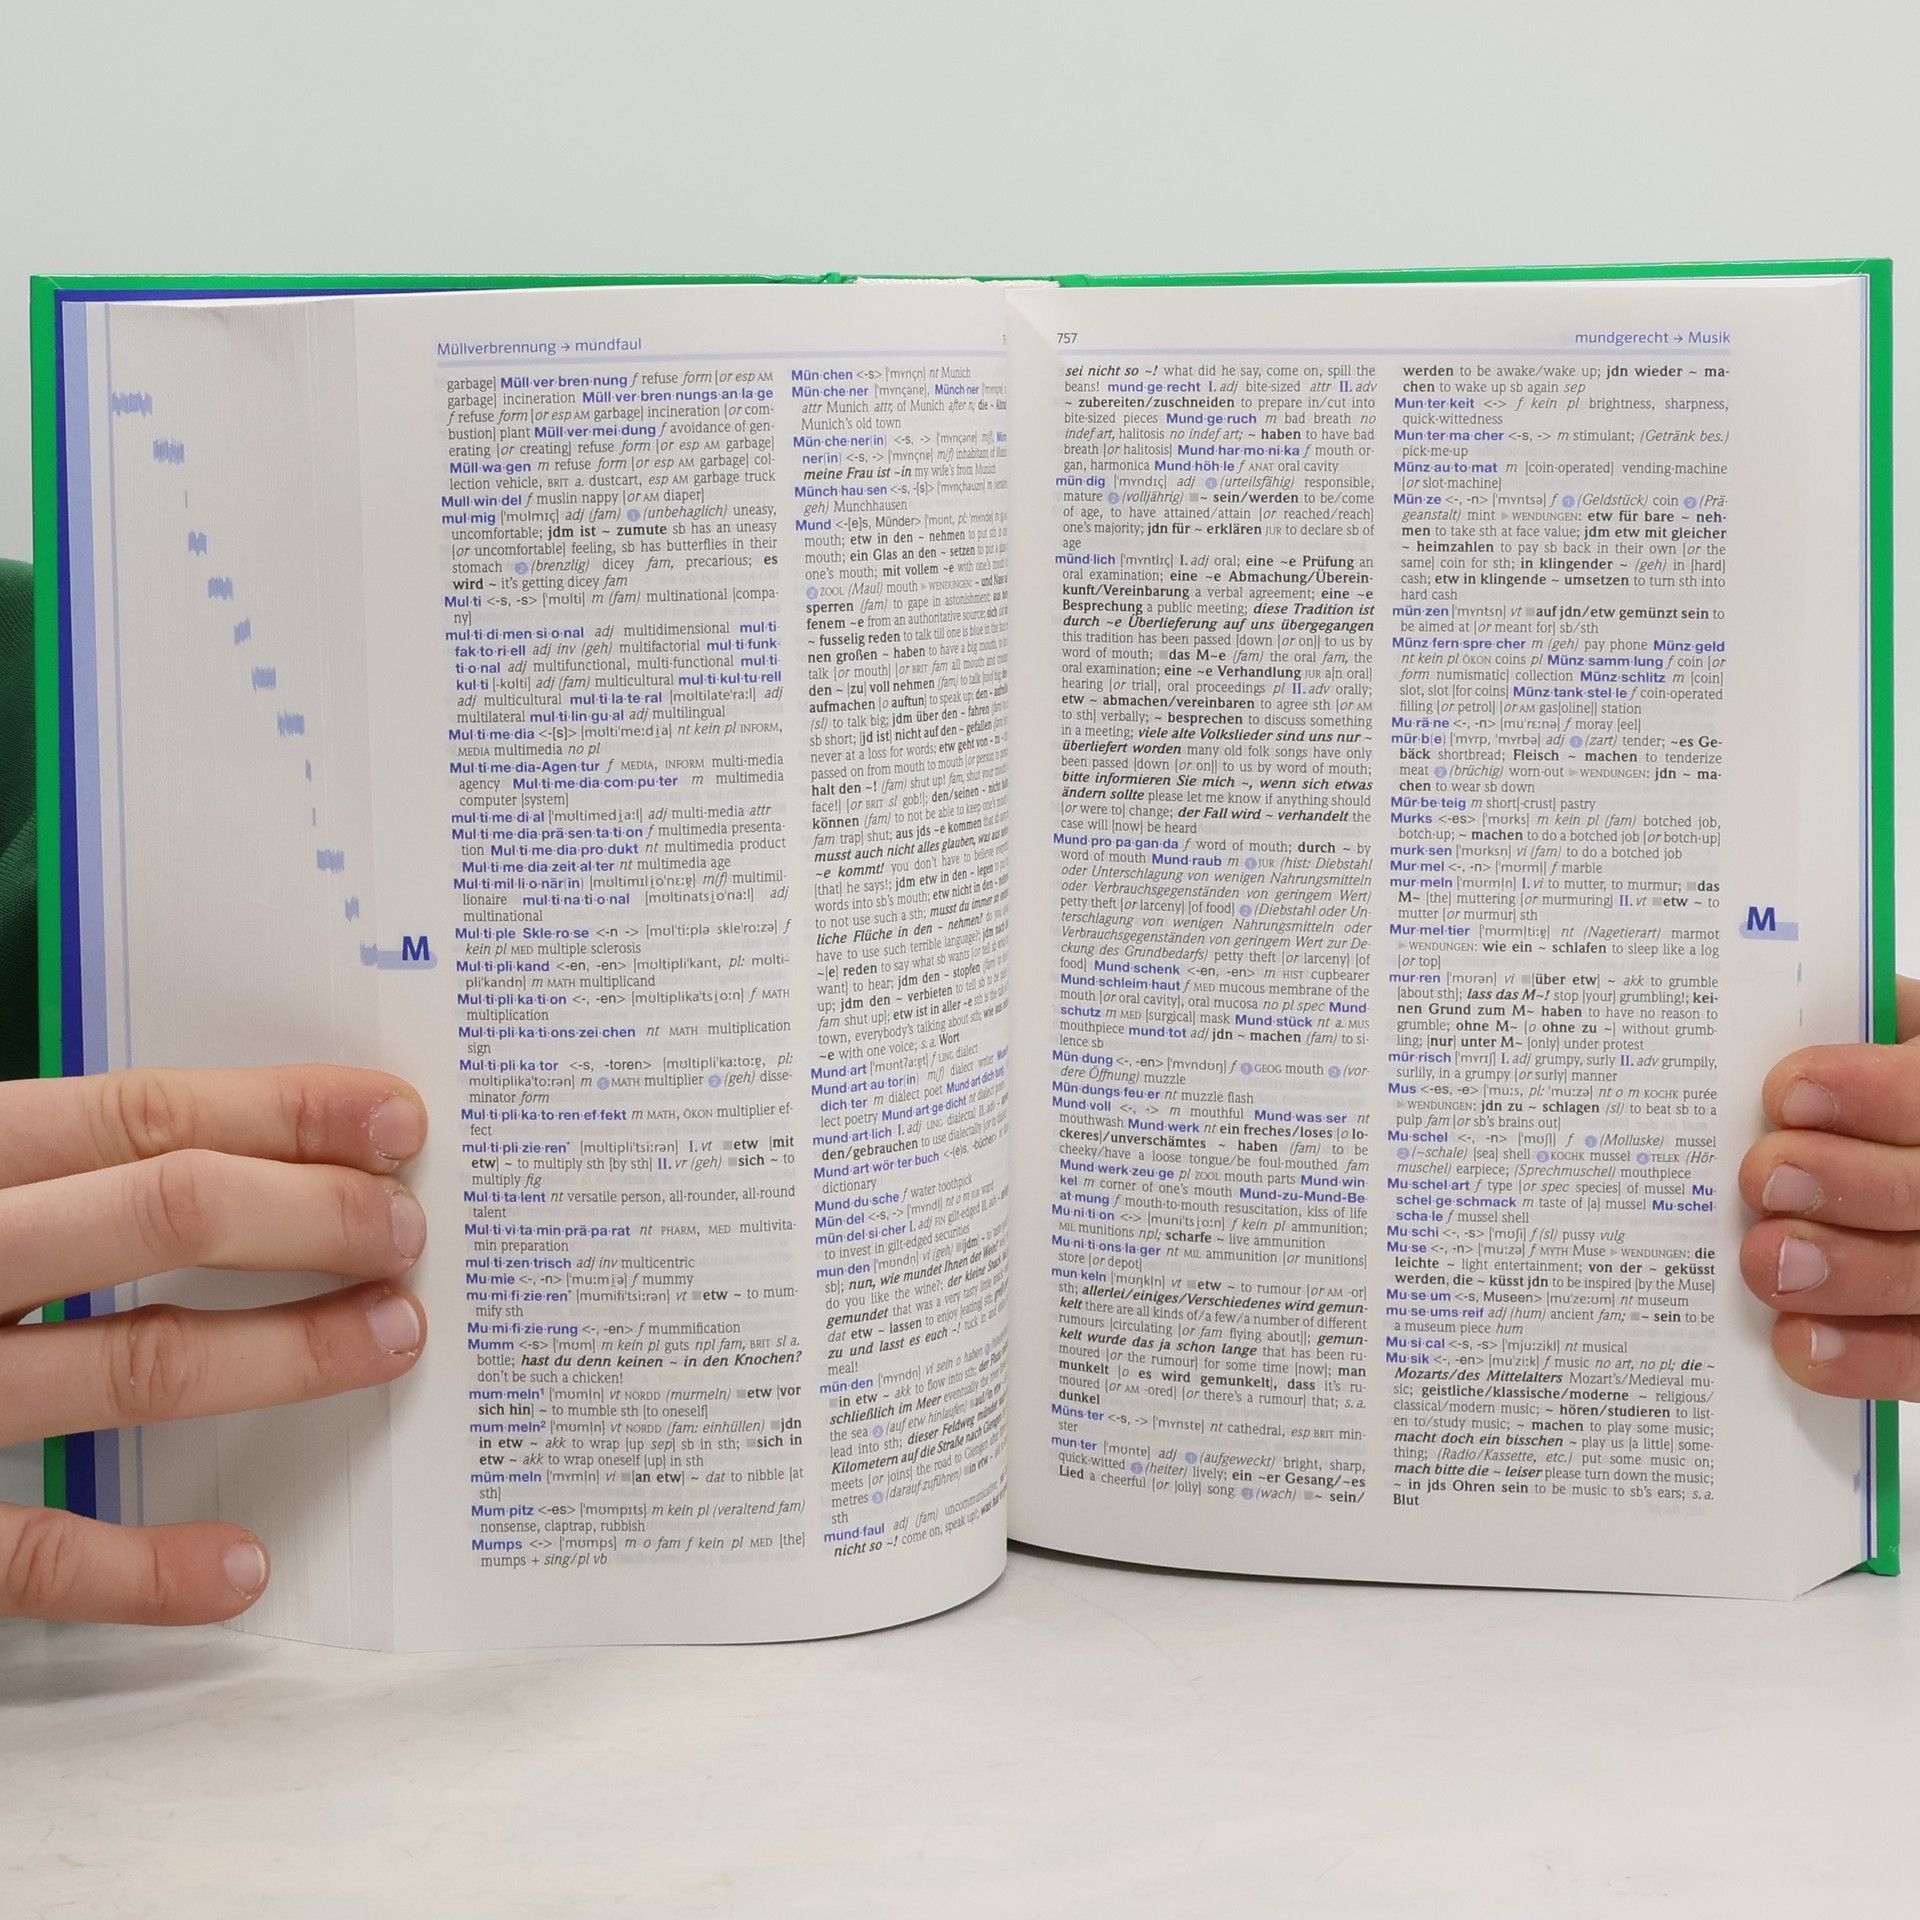 Müllverbrennung → mundfaul
garbage] Müll·ver·bren·nung f refuse form [or esp AM
garbage] incineration Müll·ver·bren·nungs·an·la·ge
f refuse form [or esp AM garbage] incineration [or com-
bustion] plant Müll·ver·mei·dung f avoidance of gen-
erating [or creating] refuse form [or esp AM garbage]
Müll·wa·gen m refuse form [or esp AM garbage] col-
lection vehicle, BRIT a. dustcart, esp AM garbage truck
Mull·win·del f muslin nappy [or AM diaper]
mul·mig ['mʊlmɪç] adj (fam) 1 (unbehaglich) uneasy,
uncomfortable; jdm ist ~ zumute sb has an uneasy
[or uncomfortable] feeling, sb has butterflies in their
stomach 2 (brenzlig) dicey fam, precarious; es
wird ~ it's getting dicey fam
Mul·ti <-s, -s> ['mʊlti] m (fam) multinational [compa-
ny]
mul·ti·di·men·si·o·nal adj multidimensional mul·ti·
fak·to·ri·ell adj inv (geh) multifactorial mul·ti·funk·
ti·o·nal adj multifunctional, multi-functional mul·ti·
kul·ti [-kʊlti] adj (fam) multicultural mul·ti·kul·tu·rell
adj multicultural mul·ti·la·te·ral [mʊltilate'ra:l] adj
multilateral mul·ti·lin·gu·al adj multilingual
Mul·ti·me·dia <-[s]> [mʊlti'me:di̯a] nt kein pl INFORM,
MEDIA multimedia no pl
Mul·ti·me·dia-Agen·tur f MEDIA, INFORM multi-media
agency Mul·ti·me·dia·com·pu·ter m multimedia
computer [system]
mul·ti·me·di·al ['mʊltimedi̯a:l] adj multi-media attr
Mul·ti·me·dia·prä·sen·ta·ti·on f multimedia presenta-
tion Mul·ti·me·dia·pro·dukt nt multimedia product
Mul·ti·me·dia·zeit·al·ter nt multimedia age
Mul·ti·mil·li·o·när(in) [mʊltimɪli̯o'nɛ:ɐ̯] m(f) multimil-
lionaire mul·ti·na·ti·o·nal [mʊltinatsi̯o'na:l] adj
multinational
Mul·ti·ple Skle·ro·se <-n -> [mʊl'ti:plə skle'ro:zə] f
kein pl MED multiple sclerosis
Mul·ti·pli·kand <-en, -en> [mʊltipli'kant, pl: mʊlti-
pli'kandn̩] m MATH multiplicand
Mul·ti·pli·ka·ti·on <-, -en> [mʊltiplika'tsi̯o:n] f MATH
multiplication
Mul·ti·pli·ka·ti·ons·zei·chen nt MATH multiplication
sign
Mul·ti·pli·ka·tor <-s, -toren> [mʊltipli'ka:to:ɐ̯, pl:
mʊltiplika'to:rən] m 1 MATH multiplier 2 (geh) disse-
minator form
Mul·ti·pli·ka·to·ren·ef·fekt m MATH, ÖKON multiplier ef-
fect
mul·ti·pli·zie·ren* [mʊltipli'tsi:rən] I. vt ■etw [mit
etw] ~ to multiply sth [by sth] II. vr (geh) ■sich ~ to
multiply fig
Mul·ti·ta·lent nt versatile person, all-rounder, all-round
talent
Mul·ti·vi·ta·min·prä·pa·rat nt PHARM, MED multivita-
min preparation
mul·ti·zen·trisch adj inv multicentric
Mu·mie <-, -n> ['mu:mi̯ə] f mummy
mu·mi·fi·zie·ren* [mumifi'tsi:rən] vt ■etw ~ to mum-
mify sth
Mu·mi·fi·zie·rung <-, -en> f mummification
Mumm <-s> [mʊm] m kein pl guts npl fam, BRIT sl a.
bottle; hast du denn keinen ~ in den Knochen?
don't be such a chicken!
mum·meln¹ ['mʊml̩n] vt NORDD (murmeln) ■etw [vor
sich hin] ~ to mumble sth [to oneself]
mum·meln² ['mʊml̩n] vt NORDD (fam: einhüllen) ■jdn
in etw ~ akk to wrap [up sep] sb in sth; ■sich in
etw ~ akk to wrap oneself [up] in sth
müm·meln ['mʏml̩n] vi ■[an etw] ~ dat to nibble [at
sth]
Mum·pitz <-es> ['mʊmpɪts] m kein pl (veraltend fam)
nonsense, claptrap, rubbish
Mumps <-> ['mʊmps] m o fam f kein pl MED [the]
mumps + sing/pl vb
M
Mün·chen <-s> ['mʏnçn̩] nt Munich
Mün·che·ner ['mʏnçənɐ], Münch·ner
attr Munich attr, of Munich after n; die ~
Munich's old town
Mün·che·ner(in) <-s, -> ['mʏnçənɐ] m(f),
ner(in) <-s, -> ['mʏnçnɐ] m(f) inhabitant of
meine Frau ist ~in my wife's from Munich
Münch·hau·sen <-s, -[s]> ['mʏnçhauzn̩] m
geh) Munchhausen
Mund <-[e]s, Münder> ['mʊnt, pl: 'mʏndɐ] m
mouth; etw in den ~ nehmen to put sth in
mouth; ein Glas an den ~ setzen to put a
one's mouth; mit vollem ~e with one's mouth
2 ZOOL (Maul) mouth ▶WENDUNGEN: ~ und Nase
sperren (fam) to gape in astonishment; aus
fenem ~e from an authoritative source; sich
~ fusselig reden to talk till one is blue in the
nen großen ~ haben to have a big mouth,
talk [or mouth] [or BRIT fam all mouth and
den ~ [zu] voll nehmen (fam) to talk
aufmachen [o auftun] to speak up; den ~
(sl) to talk big; jdm über den ~ fahren
sb short; [jd ist] nicht auf den ~ gefallen
never at a loss for words; etw geht von ~ zu ~
passed on from mouth to mouth [or person to
halt den ~! (fam) shut up! fam, shut your
face!] [or BRIT sl gob!]; den/seinen ~ nicht
können (fam) to not be able to keep one's
fam trap] shut; aus jds ~e kommen
musst auch nicht alles glauben, was aus
~e kommt! you don't have to believe
[that] he says!; jdm etw in den ~ legen
words into sb's mouth; etw nicht in den ~
to not use such a sth; musst du immer so
liche Flüche in den ~ nehmen?
have to use such terrible language?; jdm nach
~[e] reden to say what sb wants
want] to hear; jdm den ~ stopfen (fam)
up; jdm den ~ verbieten to tell sb to
fam shut up]; etw ist in aller ~e sth is the
town, everybody's talking about sth;
~e with one voice; s. a. Wort
Mund·art ['mʊntʔa:ɐ̯t] f LING dialect
Mund·art·au·tor(in) m(f) dialect writer
dich·ter m dialect poet Mund·art·dich·tung
lect poetry Mund·art·ge·dicht nt dialect poem
mund·art·lich I. adj LING dialectal II. adv
den/gebrauchen to use dialectally
Mund·art·wör·ter·buch <-[e]s, -bücher>
dictionary
Mund·du·sche f water toothpick
Mün·del <-s, -> ['mʏndl̩] nt o m JUR ward
mün·del·si·cher I. adj FIN gilt-edged II. adv
to invest in gilt-edged securities
mun·den ['mʊndn̩] vi (geh) ■[jdm] ~
sb]; nun, wie mundet Ihnen der Wein?
do you like the wine?; der kleine Snack
gemundet that was a very tasty little snack
dat etw ~ lassen to enjoy [eating] sth;
zu und lasst es euch ~! tuck in and
meal!
mün·den ['mʏndn̩] vi sein o haben
■in etw ~ akk to flow into sth; der
schließlich im Meer eventually the
the sea 2 (auf etw hinlaufen)
lead into sth; dieser Feldweg mündet nach
Kilometern auf die Straße nach
meets [or joins] the road to
metres 3 (darauf zuführen) ■in etw ~
sth
mund·faul adj (fam) uncommunicative,
nicht so ~! come on, speak up!;
757
mundgerecht → Musik
sei nicht so ~! what did he say, come on, spill the
beans! mund·ge·recht I. adj bite-sized attr II. adv
~ zubereiten/zuschneiden to prepare in/cut into
bite-sized pieces Mund·ge·ruch m bad breath no
indef art, halitosis no indef art; ~ haben to have bad
breath [or halitosis] Mund·har·mo·ni·ka f mouth or-
gan, harmonica Mund·höh·le f ANAT oral cavity
mün·dig ['mʏndɪç] adj 1 (urteilsfähig) responsible,
mature 2 (volljährig) ■~ sein/werden to be/come
of age, to have attained/attain [or reached/reach]
one's majority; jdn für ~ erklären JUR to declare sb of
age
münd·lich ['mʏntlɪç] I. adj oral; eine ~e Prüfung an
oral examination; eine ~e Abmachung/Überein-
kunft/Vereinbarung a verbal agreement; eine ~e
Besprechung a public meeting; diese Tradition ist
durch ~e Überlieferung auf uns übergegangen
this tradition has been passed [down [or on]] to us by
word of mouth; ■das M~e (fam) the oral fam, the
oral examination; eine ~e Verhandlung JUR a[n oral]
hearing [or trial], oral proceedings pl II. adv orally;
etw ~ abmachen/vereinbaren to agree sth [or AM
to sth] verbally; ~ besprechen to discuss something
in a meeting; viele alte Volkslieder sind uns nur ~
überliefert worden many old folk songs have only
been passed [down [or on]] to us by word of mouth;
bitte informieren Sie mich ~, wenn sich etwas
ändern sollte please let me know if anything should
[or were to] change; der Fall wird ~ verhandelt the
case will [now] be heard
Mund·pro·pa·gan·da f word of mouth; durch ~ by
word of mouth Mund·raub m 1 JUR (hist: Diebstahl
oder Unterschlagung von wenigen Nahrungsmitteln
oder Verbrauchsgegenständen von geringem Wert)
petty theft [or larceny] [of food] 2 (Diebstahl oder Un-
terschlagung von wenigen Nahrungsmitteln oder
Verbrauchsgegenständen von geringem Wert zur De-
ckung des Grundbedarfs) petty theft [or larceny] [of
food] Mund·schenk <-en, -en> m HIST cupbearer
Mund·schleim·haut f MED mucous membrane of the
mouth [or oral cavity], oral mucosa no pl spec Mund·
schutz m MED [surgical] mask Mund·stück nt a. MUS
mouthpiece mund·tot adj jdn ~ machen (fam) to si-
lence sb
Mün·dung <-, -en> ['mʏndʊŋ] f 1 GEOG mouth 2 (vor-
dere Öffnung) muzzle
Mün·dungs·feu·er nt muzzle flash
Mund·voll <-, -> m mouthful Mund·was·ser nt
mouthwash Mund·werk nt ein freches/loses [o lo-
ckeres]/unverschämtes ~ haben (fam) to be
cheeky/have a loose tongue/be foul-mouthed fam
Mund·werk·zeu·ge pl ZOOL mouth parts Mund·win·
kel m corner of one's mouth Mund-zu-Mund-Be·
at·mung f mouth-to-mouth resuscitation, kiss of life
Mu·ni·ti·on <-> [muni'tsi̯o:n] f kein pl ammunition;
MIL munitions npl; scharfe ~ live ammunition
Mu·ni·ti·ons·la·ger nt MIL ammunition [or munitions]
store [or depot]
mun·keln ['mʊŋkl̩n] vt ■etw ~ to rumour [or AM -or]
sth; allerlei/einiges/Verschiedenes wird gemun-
kelt there are all kinds of/a few/a number of different
rumours [circulating [or fam flying about]]; gemun-
kelt wurde das ja schon lange that has been ru-
moured [or the rumour] for some time [now]; man
munkelt [o es wird gemunkelt], dass it's ru-
moured [or AM -ored] [or there's a rumour] that; s. a.
dunkel
Müns·ter <-s, -> ['mʏnstɐ] nt cathedral, esp BRIT min-
ster
mun·ter ['mʊntɐ] adj 1 (aufgeweckt) bright, sharp,
quick-witted 2 (heiter) lively; ein ~er Gesang/~es
Lied a cheerful [or jolly] song 3 (wach) ■~ sein/
werden to be awake/wake up; jdn wieder ~ ma-
chen to wake up sb again sep
Mun·ter·keit <-> f kein pl brightness, sharpness,
quick-wittedness
Mun·ter·ma·cher <-s, -> m stimulant; (Getränk bes.)
pick-me-up
Münz·au·to·mat m [coin-operated] vending-machine
[or slot-machine]
Mün·ze <-, -n> ['mʏntsə] f 1 (Geldstück) coin 2 (Prä-
geanstalt) mint ▶WENDUNGEN: etw für bare ~ neh-
men to take sth at face value; jdm etw mit gleicher
~ heimzahlen to pay sb back in their own [or the
same] coin for sth; in klingender ~ (geh) in [hard]
cash; etw in klingende ~ umsetzen to turn sth into
hard cash
mün·zen ['mʏntsn̩] vt ■auf jdn/etw gemünzt sein to
be aimed at [or meant for] sb/sth
Münz·fern·spre·cher m (geh) pay phone Münz·geld
nt kein pl ÖKON coins pl Münz·samm·lung f coin [or
form numismatic] collection Münz·schlitz m [coin]
slot, slot [for coins] Münz·tank·stel·le f coin-operated
filling [or petrol] [or AM gas[oline]] station
Mu·rä·ne <-, -n> [mu'rɛ:nə] f moray [eel]
mür·b(e) ['mʏrp, 'mʏrbə] adj 1 (zart) tender; ~es Ge-
bäck shortbread; Fleisch ~ machen to tenderize
meat 2 (brüchig) worn-out ▶WENDUNGEN: jdn ~ ma-
chen to wear sb down
Mür·be·teig m short[-crust] pastry
Murks <-es> ['mʊrks] m kein pl (fam) botched job,
botch-up; ~ machen to do a botched job [or botch-up]
murk·sen ['mʊrksn̩] vi (fam) to do a botched job
Mur·mel <-, -n> ['mʊrml̩] f marble
mur·meln ['mʊrml̩n] I. vi to mutter, to murmur; ■das
M~ [the] muttering [or murmuring] II. vt ■etw ~ to
mutter [or murmur] sth
Mur·mel·tier ['mʊrml̩ti:ɐ̯] nt (Nagetierart) marmot
▶WENDUNGEN: wie ein ~ schlafen to sleep like a log
[or top]
mur·ren ['mʊrən] vi ■[über etw] ~ akk to grumble
[about sth]; lass das M~! stop [your] grumbling!; kei-
nen Grund zum M~ haben to have no reason to
grumble; ohne M~ [o ohne zu ~] without grumb-
ling; [nur] unter M~ [only] under protest
mür·risch ['mʏrɪʃ] I. adj grumpy, surly II. adv grumpily,
surlily, in a grumpy [or surly] manner
Mus <-es, -e> ['mu:s, pl: 'mu:zə] nt o m KOCHK purée
▶WENDUNGEN: jdn zu ~ schlagen (sl) to beat sb to a
pulp fam [or sb's brains out]
Mu·schel <-, -n> ['mʊʃl̩] f 1 (Molluske) mussel
2 (~schale) [sea] shell 3 KOCHK mussel 4 TELEK (Hör-
muschel) earpiece; (Sprechmuschel) mouthpiece
Mu·schel·art f type [or spec species] of mussel Mu·
schel·ge·schmack m taste of [a] mussel Mu·schel·
scha·le f mussel shell
Mu·schi <-, -s> ['mʊʃi] f (sl) pussy vulg
Mu·se <-, -n> ['mu:zə] f MYTH Muse ▶WENDUNGEN: die
leichte ~ light entertainment; von der ~ geküsst
werden, die ~ küsst jdn to be inspired [by the Muse]
Mu·se·um <-s, Museen> [mu'ze:ʊm] nt museum
mu·se·ums·reif adj (hum) ancient fam; ■~ sein to be
a museum piece hum
Mu·si·cal <-s, -s> ['mju:zikl̩] nt musical
Mu·sik <-, -en> [mu'zi:k] f music no art, no pl; die ~
Mozarts/des Mittelalters Mozart's/Medieval mu-
sic; geistliche/klassische/moderne ~ religious/
classical/modern music; ~ hören/studieren to list-
en to/study music; ~ machen to play some music;
macht doch ein bisschen ~ play us [a little] some-
thing; (Radio/Kassette, etc.) put some music on;
mach bitte die ~ leiser please turn down the music;
~ in jds Ohren sein to be music to sb's ears; s. a.
Blut
M